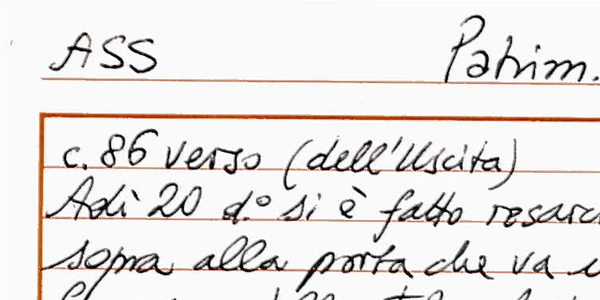 ASS Patrim.
c. 86 verso (dell'Uscita)
Adì 20 d.º si è fatto resarc
sopra alla porta che va